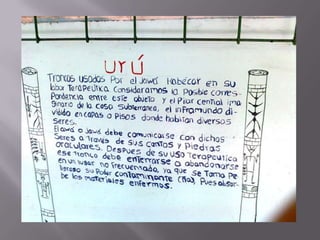 URÚ
Troncos usados Por el Jawá Habecar en su
labor Terapeutica Consideramos la Posible corres-
Pondencia entre este objeto y el Pilar central ima
ginario de la casa subterranea, el inframundo di-
vidido en capas o Pisos donde habitan diversos
Seres.
El awá o Jawá debe comunicarse con dichos
Seres a Traves de sus cantos y Piedras
oraculares. Despues de su uso Terapeutica
ese Tronco debe enterrarse o abandonarse
en un lugar no frecuentado, ya que se Toma Pe
ligroso su Poder contaminante (Ña), Pues absor-
be los materiales enfermos.